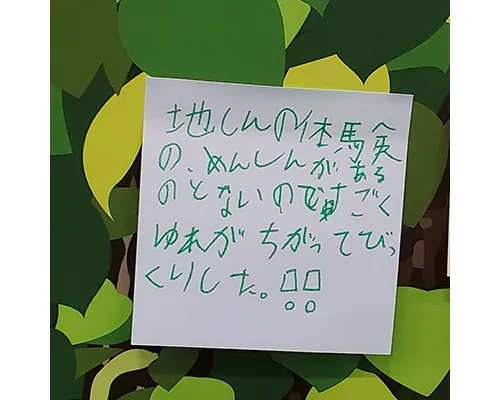 地しんの体験
の、めんしんがある
のとないのですごく
ゆれがちがってびっ
くりした。!!